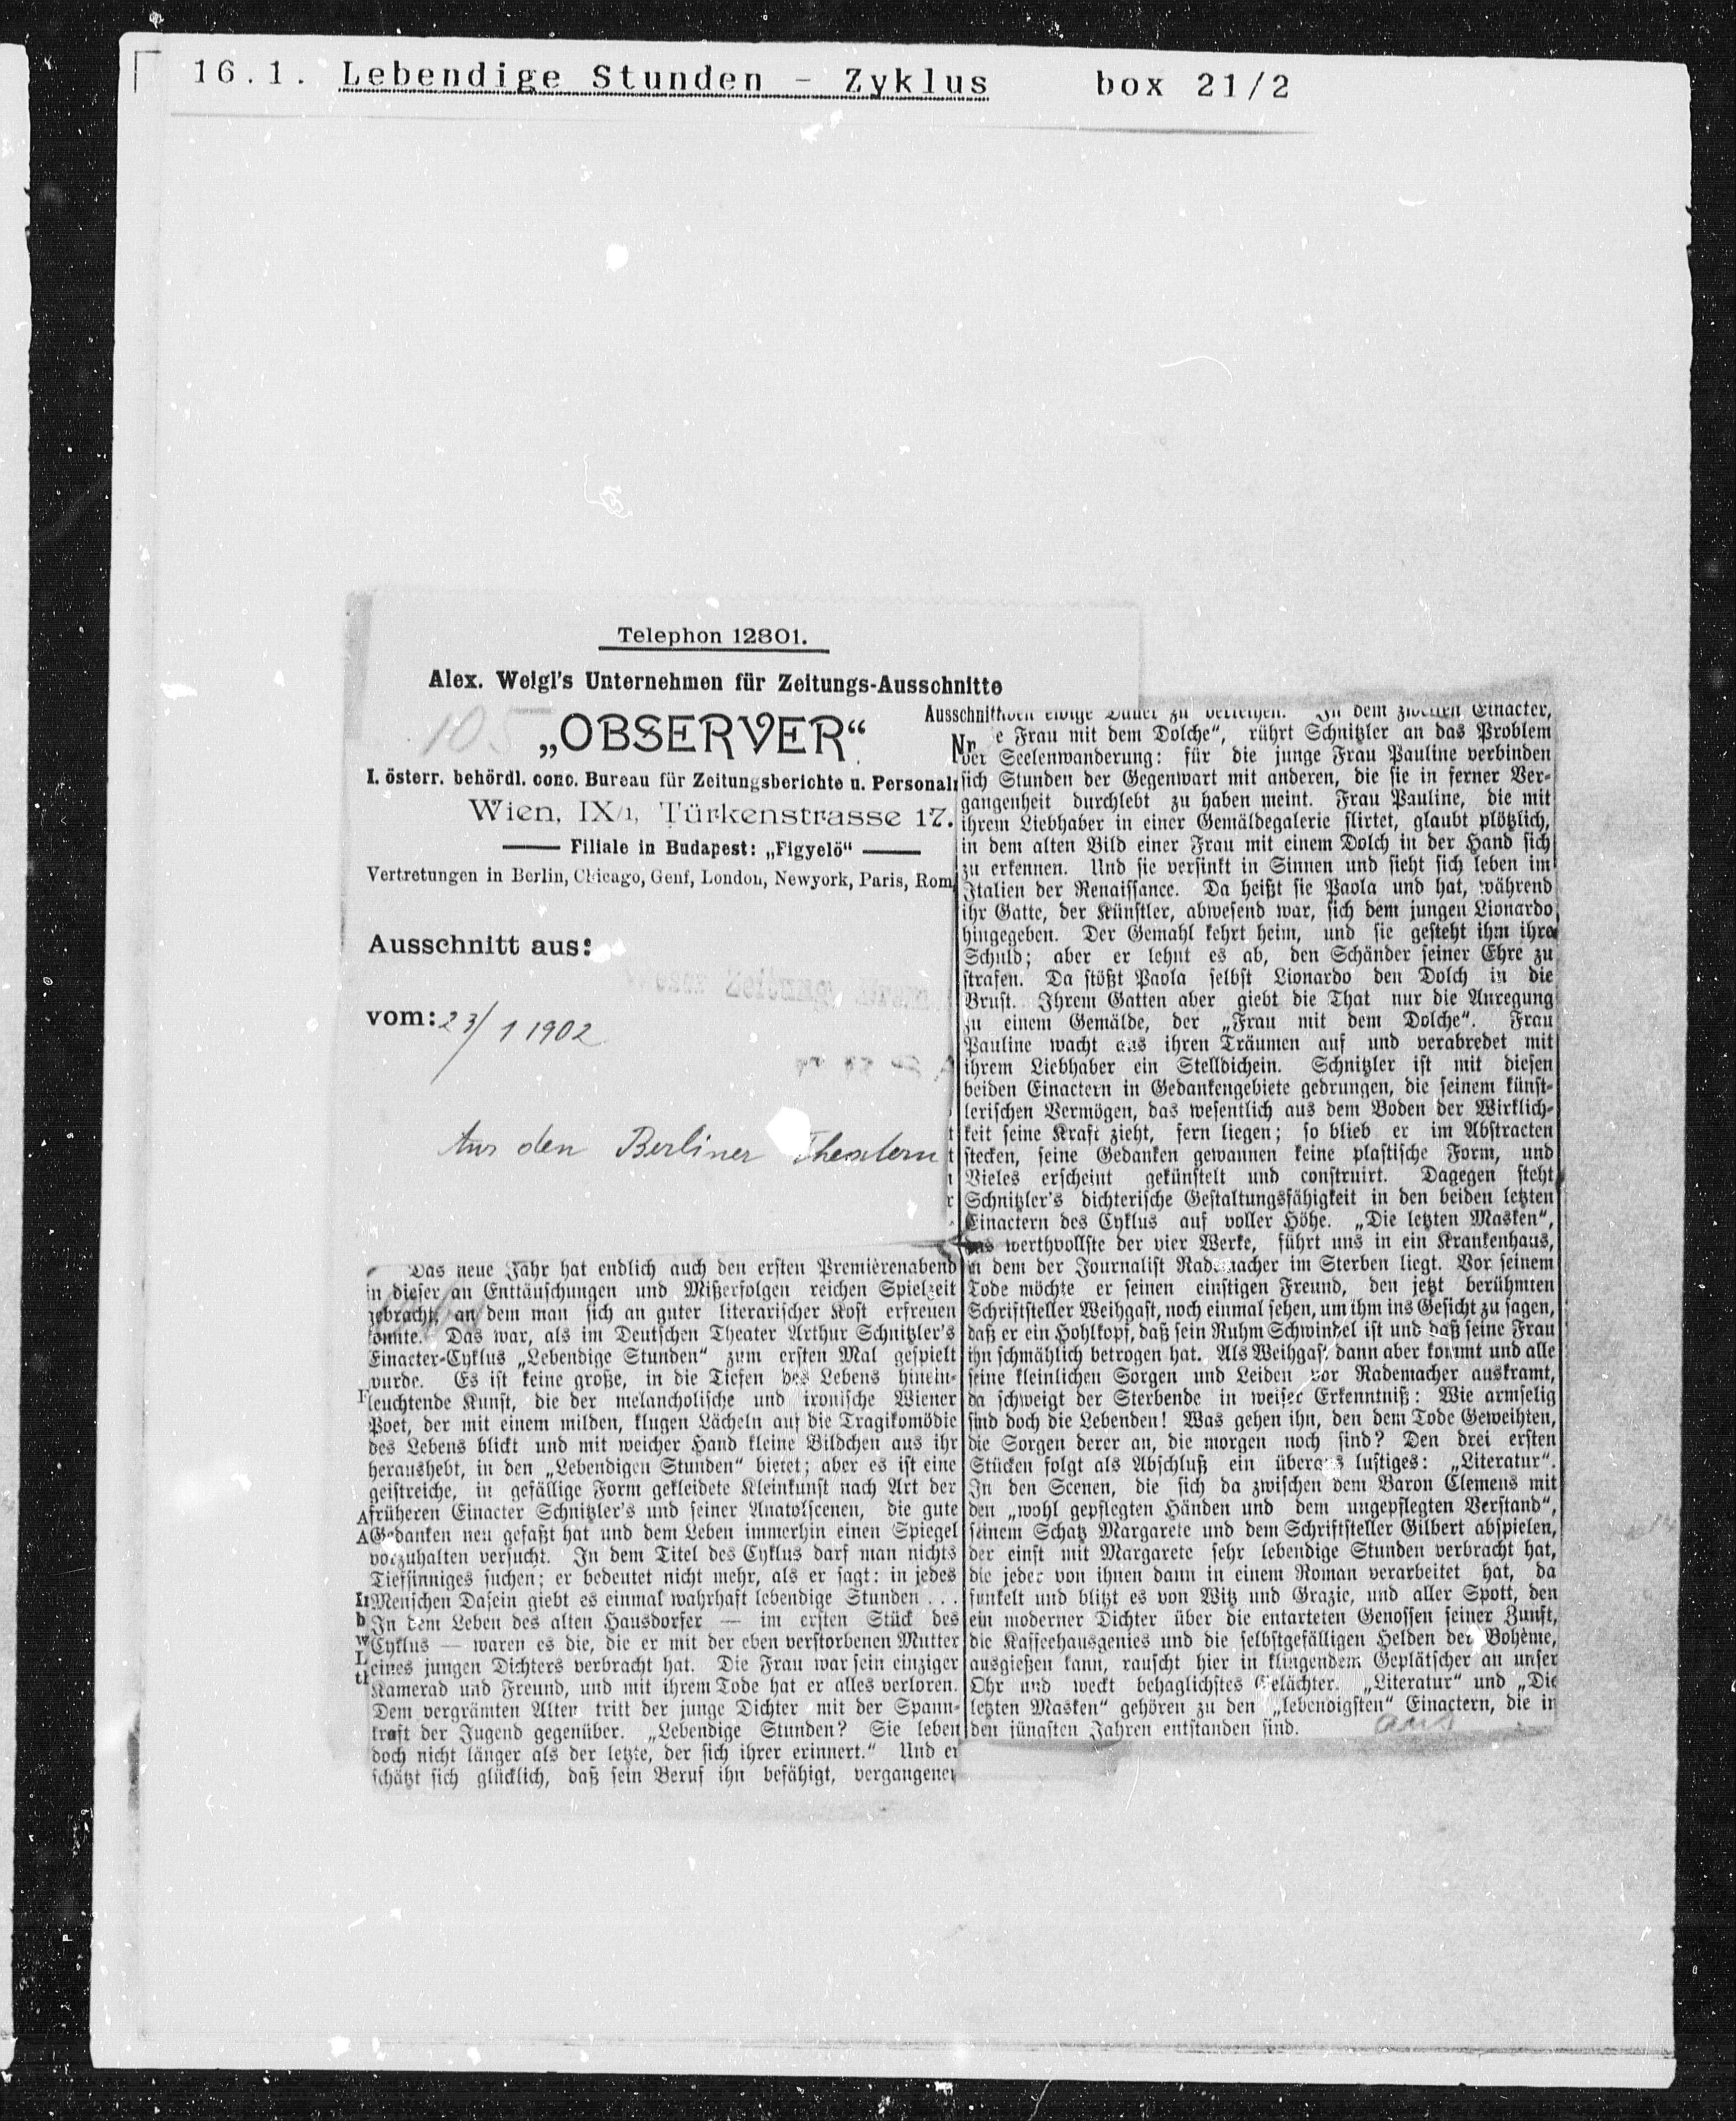 16.1. Lebendige Stunden - Zyklus box 21/2
Telephon 12801.
Alex. Weigl's Unternehmen für Zeitungs-Ausschnitte
105
„OBSERVER“
I. österr. behördl. conc. Bureau für Zeitungsberichte u. Personal
Wien, IX/1, Türkenstrasse 17.
Filiale in Budapest: „Figyelö“
Vertretungen in Berlin, Chicago, Genf, London, Newyork, Paris, Rom
Ausschnitt
Nr
Ausschnitt aus:
vom: 23/1 1902
Aus den Berliner Theatern
Das neue Jahr hat endlich auch den ersten Premièrenabend
in dieser an Enttäuschungen und Mißerfolgen reichen Spielzeit
gebracht, an dem man sich an guter literarischer Kost erfreuen
konnte. Das war, als im Deutschen Theater Arthur Schnitzler's
Einacter-Cyklus „Lebendige Stunden“ zum ersten Mal gespielt
wurde. Es ist keine große, in die Tiefen des Lebens hinein-
leuchtende Kunst, die der melancholische und ironische Wiener
Poet, der mit einem milden, klugen Lächeln auf die Tragikomödie
des Lebens blickt und mit weicher Hand kleine Bildchen aus ihr
heraushebt, in den „Lebendigen Stunden“ bietet; aber es ist eine
geistreiche, in gefällige Form gekleidete Kleinkunst nach Art der
früheren Einacter Schnitzler's und seiner Anatolscenen, die gute
Gedanken neu gefaßt hat und dem Leben immerhin einen Spiegel
vorzuhalten versucht. In dem Titel des Cyklus darf man nichts
Tiefsinniges suchen; er bedeutet nicht mehr, als er sagt: in jedes
Menschen Dasein giebt es einmal wahrhaft lebendige Stunden . . .
In dem Leben des alten Hausdorfer — im ersten Stück des
Cyklus — waren es die, die er mit der eben verstorbenen Mutter
eines jungen Dichters verbracht hat. Die Frau war sein einziger
Kamerad und Freund, und mit ihrem Tode hat er alles verloren.
Dem vergrämten Alten tritt der junge Dichter mit der Spann-
kraft der Jugend gegenüber. „Lebendige Stunden? Sie leben
doch nicht länger als der letzte, der sich ihrer erinnert.“ Und er
schätzt sich glücklich, daß sein Beruf ihn befähigt, vergangenen
ewige Dauer zu verleihen. In dem zweiten Einacter,
e Frau mit dem Dolche“, rührt Schnitzler an das Problem
der Seelenwanderung: für die junge Frau Pauline verbinden
sich Stunden der Gegenwart mit anderen, die sie in ferner Ver-
gangenheit durchlebt zu haben meint. Frau Pauline, die mit
ihrem Liebhaber in einer Gemäldegalerie flirtet, glaubt plötzlich,
in dem alten Bild einer Frau mit einem Dolch in der Hand sich
zu erkennen. Und sie versinkt in Sinnen und sieht sich leben im
Italien der Renaissance. Da heißt sie Paola und hat, während
ihr Gatte, der Künstler, abwesend war, sich dem jungen Lionardo
hingegeben. Der Gemahl kehrt heim, und sie gesteht ihm ihre
Schuld; aber er lehnt es ab, den Schänder seiner Ehre zu
strafen. Da stößt Paola selbst Lionardo den Dolch in die
Brust. Ihrem Gatten aber giebt die That nur die Anregung
zu einem Gemälde, der „Frau mit dem Dolche“. Frau
Pauline wacht aus ihren Träumen auf und verabredet mit
ihrem Liebhaber ein Stelldichein. Schnitzler ist mit diesen
beiden Einactern in Gedankengebiete gedrungen, die seinem künst-
lerischen Vermögen, das wesentlich aus dem Boden der Wirklich-
keit seine Kraft zieht, fern liegen; so blieb er im Abstracten
stecken, seine Gedanken gewannen keine plastische Form, und
Vieles erscheint gekünstelt und construirt. Dagegen steht
Schnitzler's dichterische Gestaltungsfähigkeit in den beiden letzten
Einactern des Cyklus auf voller Höhe. „Die letzten Masken“,
das werthvollste der vier Werke, führt uns in ein Krankenhaus,
in dem der Journalist Rademacher im Sterben liegt. Vor seinem
Tode möchte er seinen einstigen Freund, den jetzt berühmten
Schriftsteller Weihgast, noch einmal sehen, um ihm ins Gesicht zu sagen,
daß er ein Hohlkopf, daß sein Ruhm Schwindel ist und daß seine Frau
ihn schmählich betrogen hat. Als Weihgast dann aber kommt und alle
seine kleinlichen Sorgen und Leiden vor Rademacher auskramt,
da schweigt der Sterbende in weiser Erkenntniß: Wie armselig
sind doch die Lebenden! Was gehen ihn, den dem Tode Geweihten,
die Sorgen derer an, die morgen noch sind? Den drei ersten
Stücken folgt als Abschluß ein überaus lustiges: „Literatur“.
In den Scenen, die sich da zwischen dem Baron Clemens mit
den „wohl gepflegten Händen und dem ungepflegten Verstand“,
seinem Schatz Margarete und dem Schriftsteller Gilbert abspielen,
der einst mit Margarete sehr lebendige Stunden verbracht hat,
die jeder von ihnen dann in einem Roman verarbeitet hat, da
funkelt und blitzt es von Witz und Grazie, und aller Spott, den
ein moderner Dichter über die entarteten Genossen seiner Zunft,
die Kaffeehausgenies und die selbstgefälligen Helden der Bohème,
ausgießen kann, rauscht hier in klingendem Geplätscher an unser
Ohr und weckt behaglichstes Gelächter. „Literatur“ und „Die
letzten Masken“ gehören zu den „lebendigsten“ Einactern, die in
den jüngsten Jahren entstanden sind.
aus